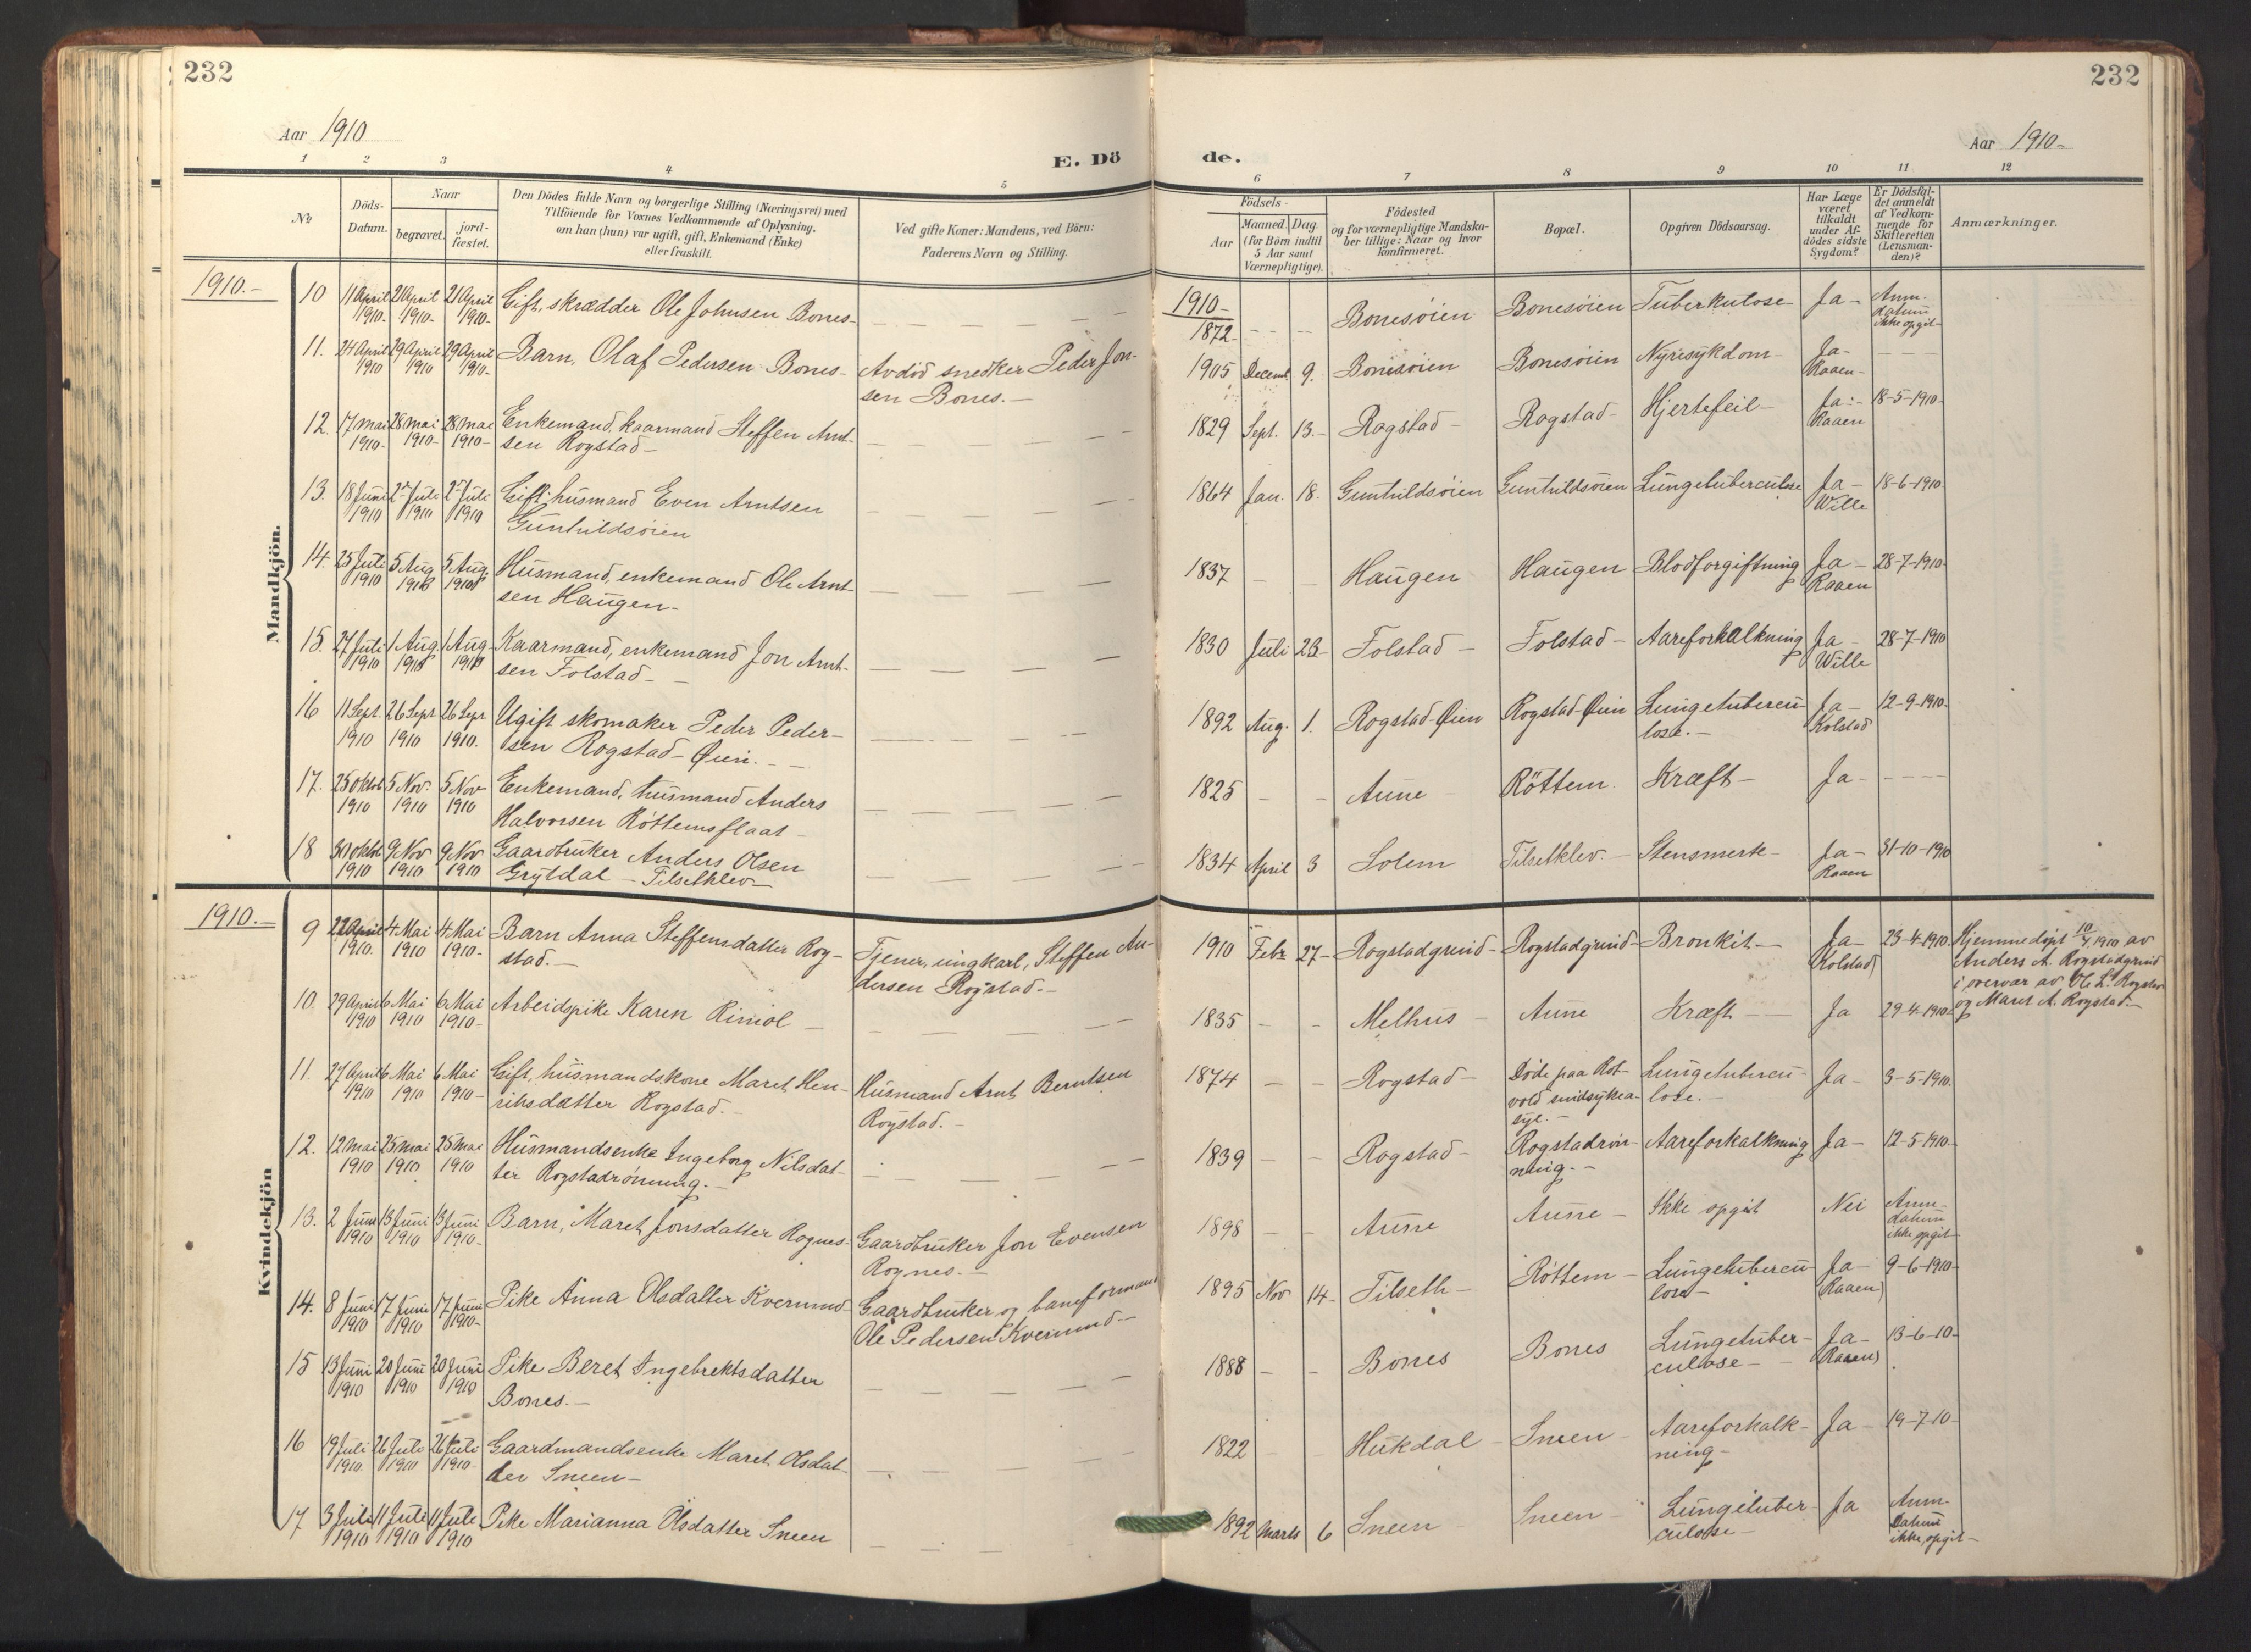 232
232
Aar 1910
Aar 1910-
E. Dö
de.
1 2 3 4 5 6 7 8 9 10 11 12
No
Döds-
Datum.
Naar
begravet.
jord-
fæstet.
Den Dödes fulde Navn og borgerlige Stilling (Næringsvei) med
Tilföiende for Voxnes Vedkommende af Oplysning,
om han (hun) var ugift, gift, Enkemand (Enke)
eller fraskilt.
Ved gifte Koner: Mandens, ved Börn:
Faderens Navn og Stilling.
Födsels-
Aar
Maaned. Dag.
(for Börn indtil
5 Aar samt
Værnepligtige).
Födested
og for værnepligtige Mandska-
ber tillige: Naar og hvor
konfirmeret.
Bopæl.
Opgiven Dödsaarsag.
Har Læge
været
tilkaldt
under Af-
dödes sidste
Sygdom?
Er Dödsfal-
det anmeldt
af Vedkom-
mende for
Skifteretten
(Lensman-
den)?
Anmærkninger.
Mandkjön.
1910.-
10 11 April 1910. 21 April 1910- 21 April 1910- Gift, skrædder Ole Johnsen Bones-
1910-
1872- Bonesöien Bonesöien Tuberkulose Ja- Anm. datum ikke opgit-
11. 24 April 1910 29 April 1910 29 April 1910- Barn, Olaf Pedersen Bones- Avdöd snedker Peder Jon-
sen Bones.-
1905 Decemb. 9. Bonesöien Bonesöien Nyresykdom- Ja- Raaen-
12. 17 mai 1910- 28 mai 1910- 28 mai 1910- Enkemand, kaarmand Steffen Arnt-
sen Rogstad-
1829 Sept. 13.- Rogstad- Rogstad- Hjertefeil- Ja:- Raaen 18-5-1910-
13. 18 Juni 1910 2 Juli 1910 2 Juli 1910 Gift, husmand Even Arntsen
Gunhildsöien
1864 Jan. 18. Gunhildsöien Gunhildsöien Lungetuberculose Ja- Wille 18-6-1910
14. 25 Juli 1910 5 Aug 1910 5 Aug. 1910 Husmand, enkemand Ole Arnt-
sen Haugen-
1837 Haugen Haugen Blodforgiftning Ja- Raaen 28-7-1910-
15. 27 Juli 1910 1 Aug. 1910 1 Aug. 1910 Kaarmand, enkemand Jon Arnt-
sen Folstad-
1830 Juli 23- Folstad- Folstad- Aareforkalkning Ja- Wille 28-7-1910
16 11 Sept. 1910 26 Sept 1910 26 Sept 1910. Ugift skomaker Peder Peder-
sen Rogstad-Öien.
1892 Aug. 1. Rogstad-Öien Rogstad-Öien Lungetubercu
lose.- Ja- Kolstad 12-9-1910-
17. 25 oktob 1910 5 Nov. 1910 5 Nov- 1910 Enkemand, husmand Anders
Halvorsen Röttemsflaat-
1825 Aune- Röttem. Kræft- Ja-
18 30 oktob 1910 9 Nov 1910 9 Nov 1910 Gaardbruker Anders Olsen
Grytdal - Tilsetklev-
1834 April 3 Solem Tilsetklev.- Stensmerte- Ja- Raaen 31-10-1910
Kvindekjön
1910.-
9 22 April 1910. 4 Mai 1910 4 Mai 1910- Barn Anna Steffensdatter Rog-
stad.- Tjener, ungkarl, Steffen An-
dersen Rogstad.-
1910 Febr 27- Rogstadgrind- Rogstadgrind- Bronkit- Ja- Kolstad 23-4-1910. Hjemmedöpt 10/4 1910 av
Anders A. Rogstadgrind
i overvær av Ole L.
og Maret A. Rogstad.-
10. 29 April 1910 6 Mai 1910 6 Mai 1910- Arbeidspike Karen Rimol-
1835 Melhus- Aune Kræft- Ja 29-4-1910.
11. 27 April 1910 6 Mai 1910 6 Mai 1910- Gift, husmandskone Maret Hen-
riksdatter Rogstad.- Husmand Arnt Berntsen
Rogstad.-
1874 Rogstad- Döde paa Rot-
vold sindsykea-
syl.- Lungetubercu-
lose.- Ja- 3-5-1910.
12. 12 mai 1910 25 mai 1910 25 mai 1910 Husmandsenke Ingeborg Nilsdat-
ter Rogstadrönning.-
1839 Rogstad- Rogstadrön-
ning.- Aareforkalkning Ja- 12-5-1910-
13. 2 Juni 1910 13 Juni 1910 13 Juni 1910- Barn, Maret Jonsdatter Rognes- Gaardbruker Jon Evensen
Rognes.-
1898 Aune Aune- Ikke opgit Nei Anm- datum ikke opgit-
14. 8 Juni 1910 17 Juni 1910 17 Juni 1910- Pike Anna Olsdatter Kvernmo- Gaardbruker og baneformand
Ole Pedersen Kvernmo-
1895 Nov 14- Tilseth- Röttem- Lungetubercu
lose- Ja- Raaen 9-6-1910-
15 13 Juni 1910 20 Juni 1910 20 Juni 1910 Pike Beret Ingebrektsdatter
Bones.-
1888 Bones Bones Lungetuber-
culose- Ja- Raaen 13-6-10-
16 19 Juli 1910. 26 Juli 1910 26 Juli 1910- Gaardmandsenke Maret Olsdat-
ter Sneen-
1822 Hukdal- Sneen- Aareforkalk-
ning- Ja- 19-7-10-
17 3 Juli 1910 11 Juli 1910 11 Juli. 1910 Pike Marianna Olsdatter Sneen
1892 Marts 6 Sneen- Sneen- Lungetuber-
culose- Ja Anm- Datum ikke opgit-